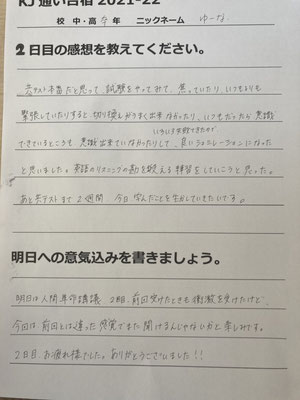 KJ 通い合宿 2021-22
校 中・高 今年 ニックネーム ゆーな
2日目の感想を教えてください。
共テ本番だと思って、試験をやってみて、焦っていたり、いつもよりも
緊張していたりすると切り換えがうまく出来なかったり、いつもだったら意識
いろいろ失敗できたので、
できているところも意識出来ていなかったりして、良いシミュレーションになった
と思いました。英語のリスニングの勘を鍛える練習をしていこうと思った。
あと共テストまで2週間、今日学んだことを生かしていきたいです。
明日への意気込みを書きましょう。
明日は人間革命講義 2期、前回受けたときも衝激を受けたけど、
今回は前回とは違った感覚でまた聞けるんじゃないかと楽しみです。
2日目、お疲れ様でした。ありがとうございました!!